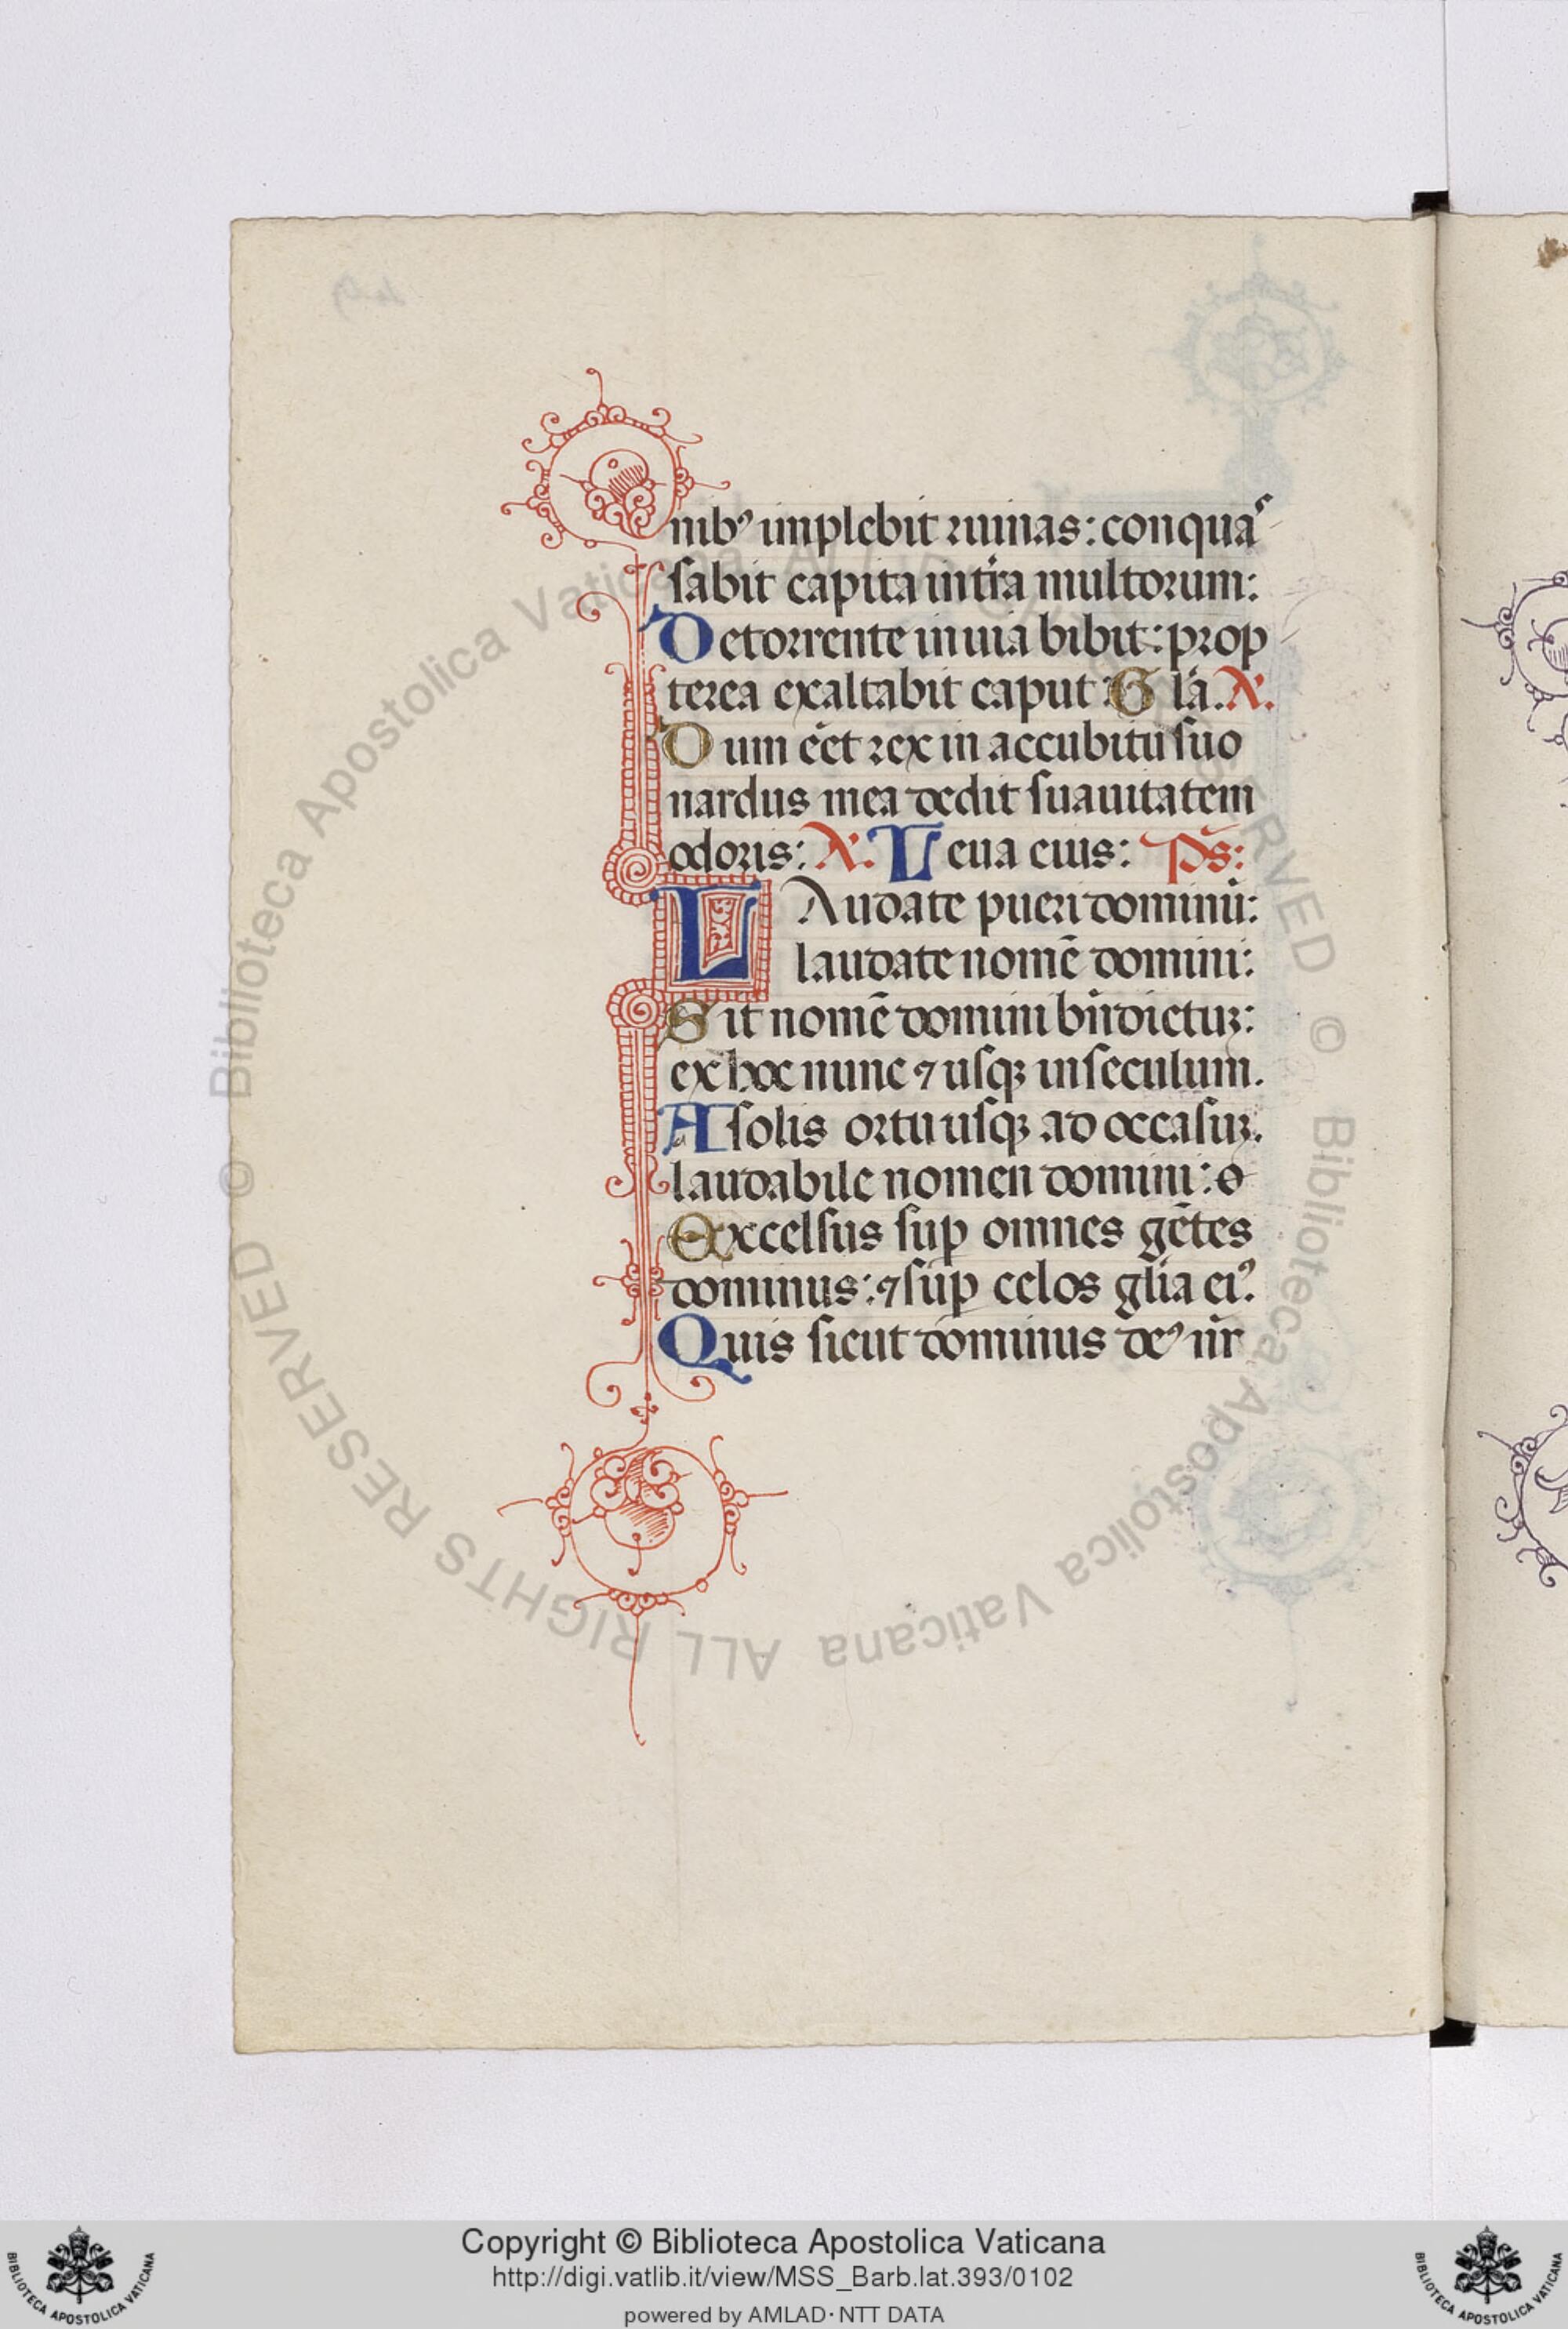 nibꝰ implebit ruinas: conquaſ
ſabit capita in tr̄a multorum:
De torrente in uia bibit: prop
terea exaltabit caput: Gl̄a. A.
Dum eēt rex in accubitu ſuo
nardus mea dedit ſuauitatem
odoris: A. Leua eius: Ps̄:
LAudate pueri dominū:
laudate nomē domini:
Sit nomē domini bn̄dictuꝫ:
ex hoc nunc ⁊ uſqꝫ in ſeculum.
A ſolis ortu uſqꝫ ad occaſuꝫ.
laudabile nomen domini:
Excelſus ſuꝑ omnes gētes
dominus: ⁊ ſuꝑ celos gl̄ia eiꝰ.
Quis ſicut dominus deꝰ nr̄
© Biblioteca Apostolica Vaticana ALL RIGHTS RESERVED © Biblioteca Apostolica Vaticana ALL RIGHTS RESERVED
Copyright © Biblioteca Apostolica Vaticana
http://digi.vatlib.it/view/MSS_Barb.lat.393/0102
powered by AMLAD·NTT DATA
BIBLIOTECA APOSTOLICA VATICANA
BIBLIOTECA APOSTOLICA VATICANA